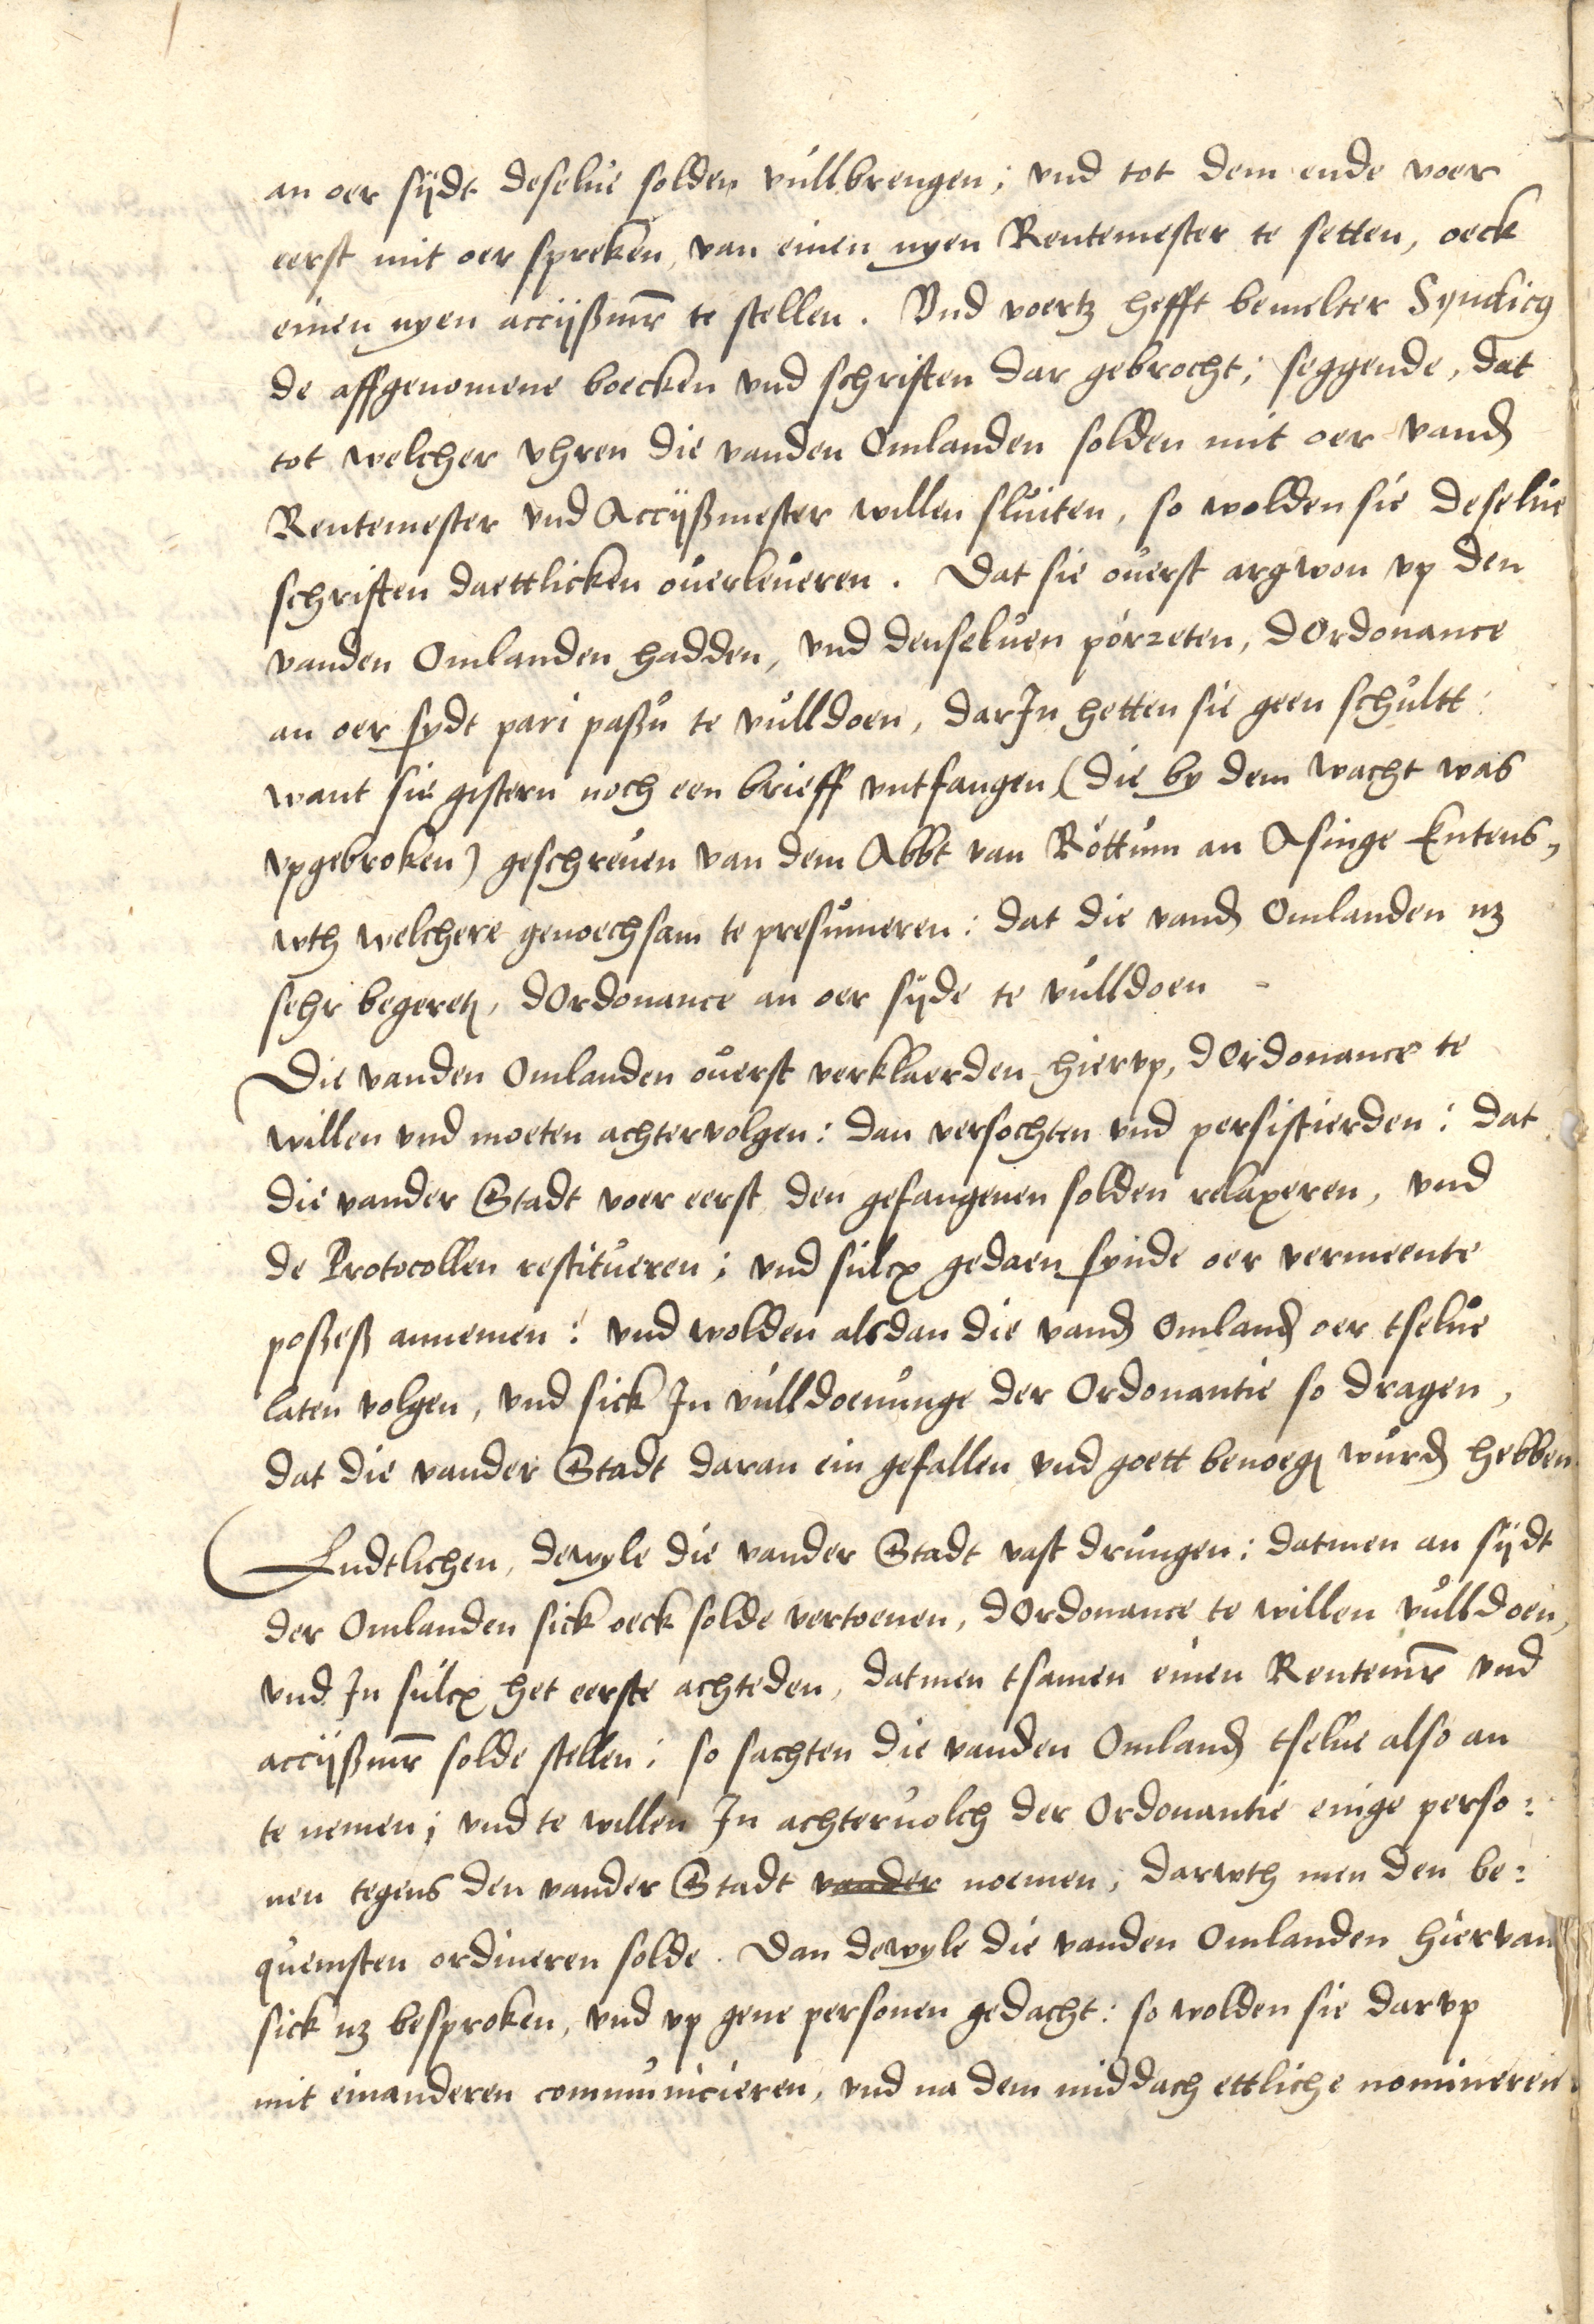 an oer sijdt deselue solden vullbrengen; vnd tot dem ende voer
eerst mit oer spreken, van einen nyen Rentemester te setten, oeck
einen nyen accijßmr te stellen. Vnd voertz hefft bemelter Syndicus
de affgenomene boecken vnd schriften dar gebrocht; seggende, dat
tot welcher vhren die vanden Omlanden solden mit oer vanden
Rentemester vnd Accijßmester willen sluiten, so wolden sie deselue
schriften daettlicken ouerleueren. Dat sie ouerst argwon vp den
vanden Omlanden hadden, vnd denseluen pórreten, dOrdonance
an oer sydt pari paßu te vulldoen, darJn hetten sie geen schultt:
want sie gistern noch een brieff vntfangen (die by dem wacht was
vpgebroken) geschreuen van dem Abbt van Róttum an Asinge Entens,
wth welchere genoechsam te presumeren: dat die vanden Omlanden nz
sehr begereten, dOrdonance an oer sijde te vulldoen -
Die vanden Omlanden ouerst verklaerden hiervp, dOrdonance te
willen vnd moeten achtervolgen: dan versochten vnd persistierden: dat
die vander Stadt voer eerst den gefangenen solden relaxeren, vnd
de Protocollen restitueren; vnd sulcx gedaen synde oer vermeente
poßeß annemen: vnd wolden alsdan die vanden Omlanden oer tselue
laten volgen, vnd sick Jn vulldoenunge der Ordonantie so dragen,
dat die vander Stadt daran ein gefallen vnd goett benoegen wurden hebben
Endtlichen, dewyle die vander Stadt vast drungen: datmen an sijdt
der Omlanden sick oeck solde vertoenen, dOrdonance te willen vulldoen,
vnd Jn sulcx het eerste achteden, datmen tsamen einen Rentemr vnd
accijßmr solde stellen: so sachten die vanden Omlanden tselue also an
te nemen; vnd te willen Jn achteruolch der Ordonantie einige perso:
nen tegens den vander Stadt vander noemen, darwth men den be:
quemsten ordineren solde. Dan dewyle die vanden Omlanden hiervan
sick nz besproken, vnd vp gene personen gedacht: so wolden sie darvp
mit einanderen communicieren, vnd na dem middach ettliche nomineren.